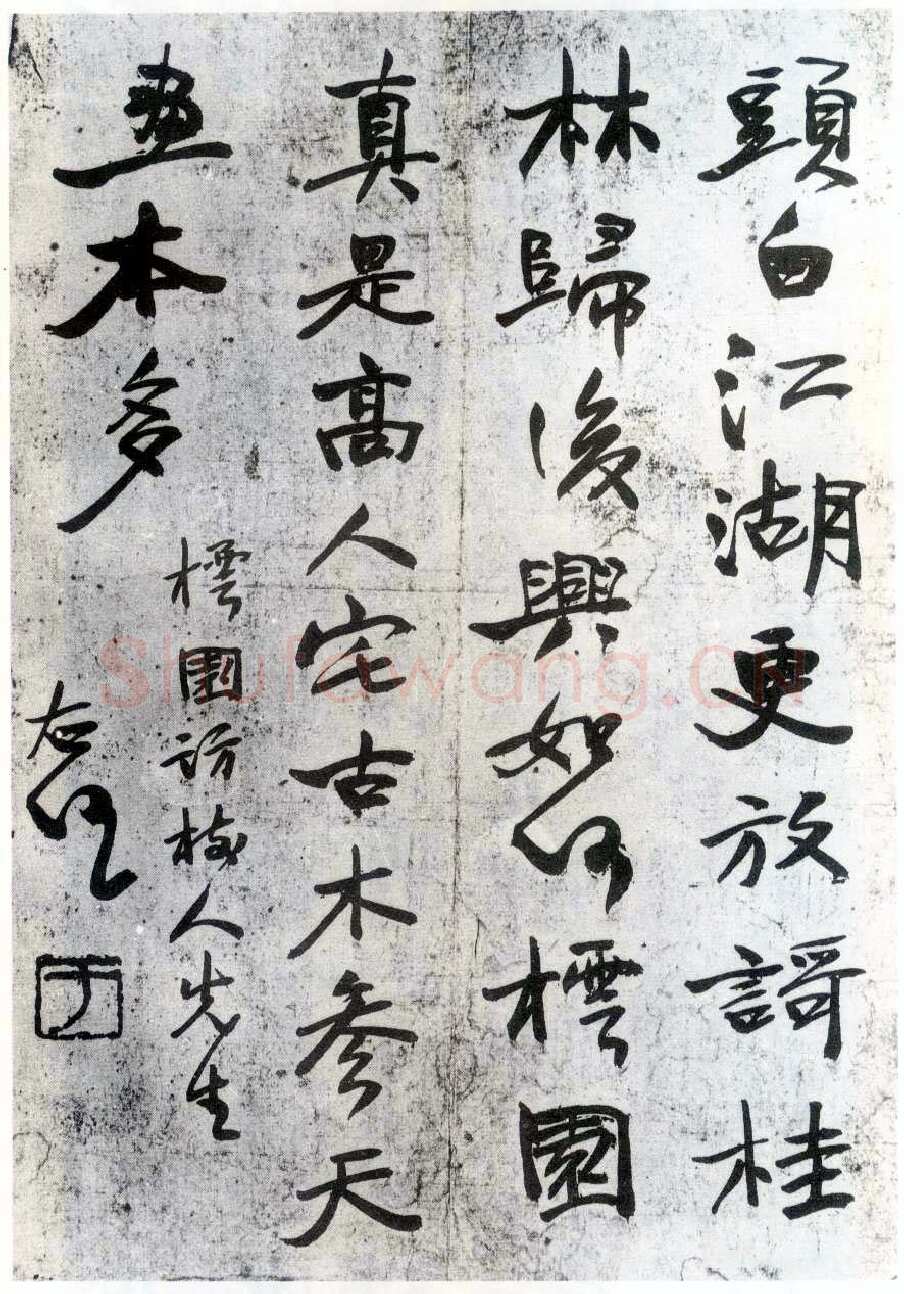 頭白江湖更放謌桂
林歸後興如何橒園
真是高人宅古木參天
畫本多
橒園訪梅人先生
右任
于
Shufawang.CN